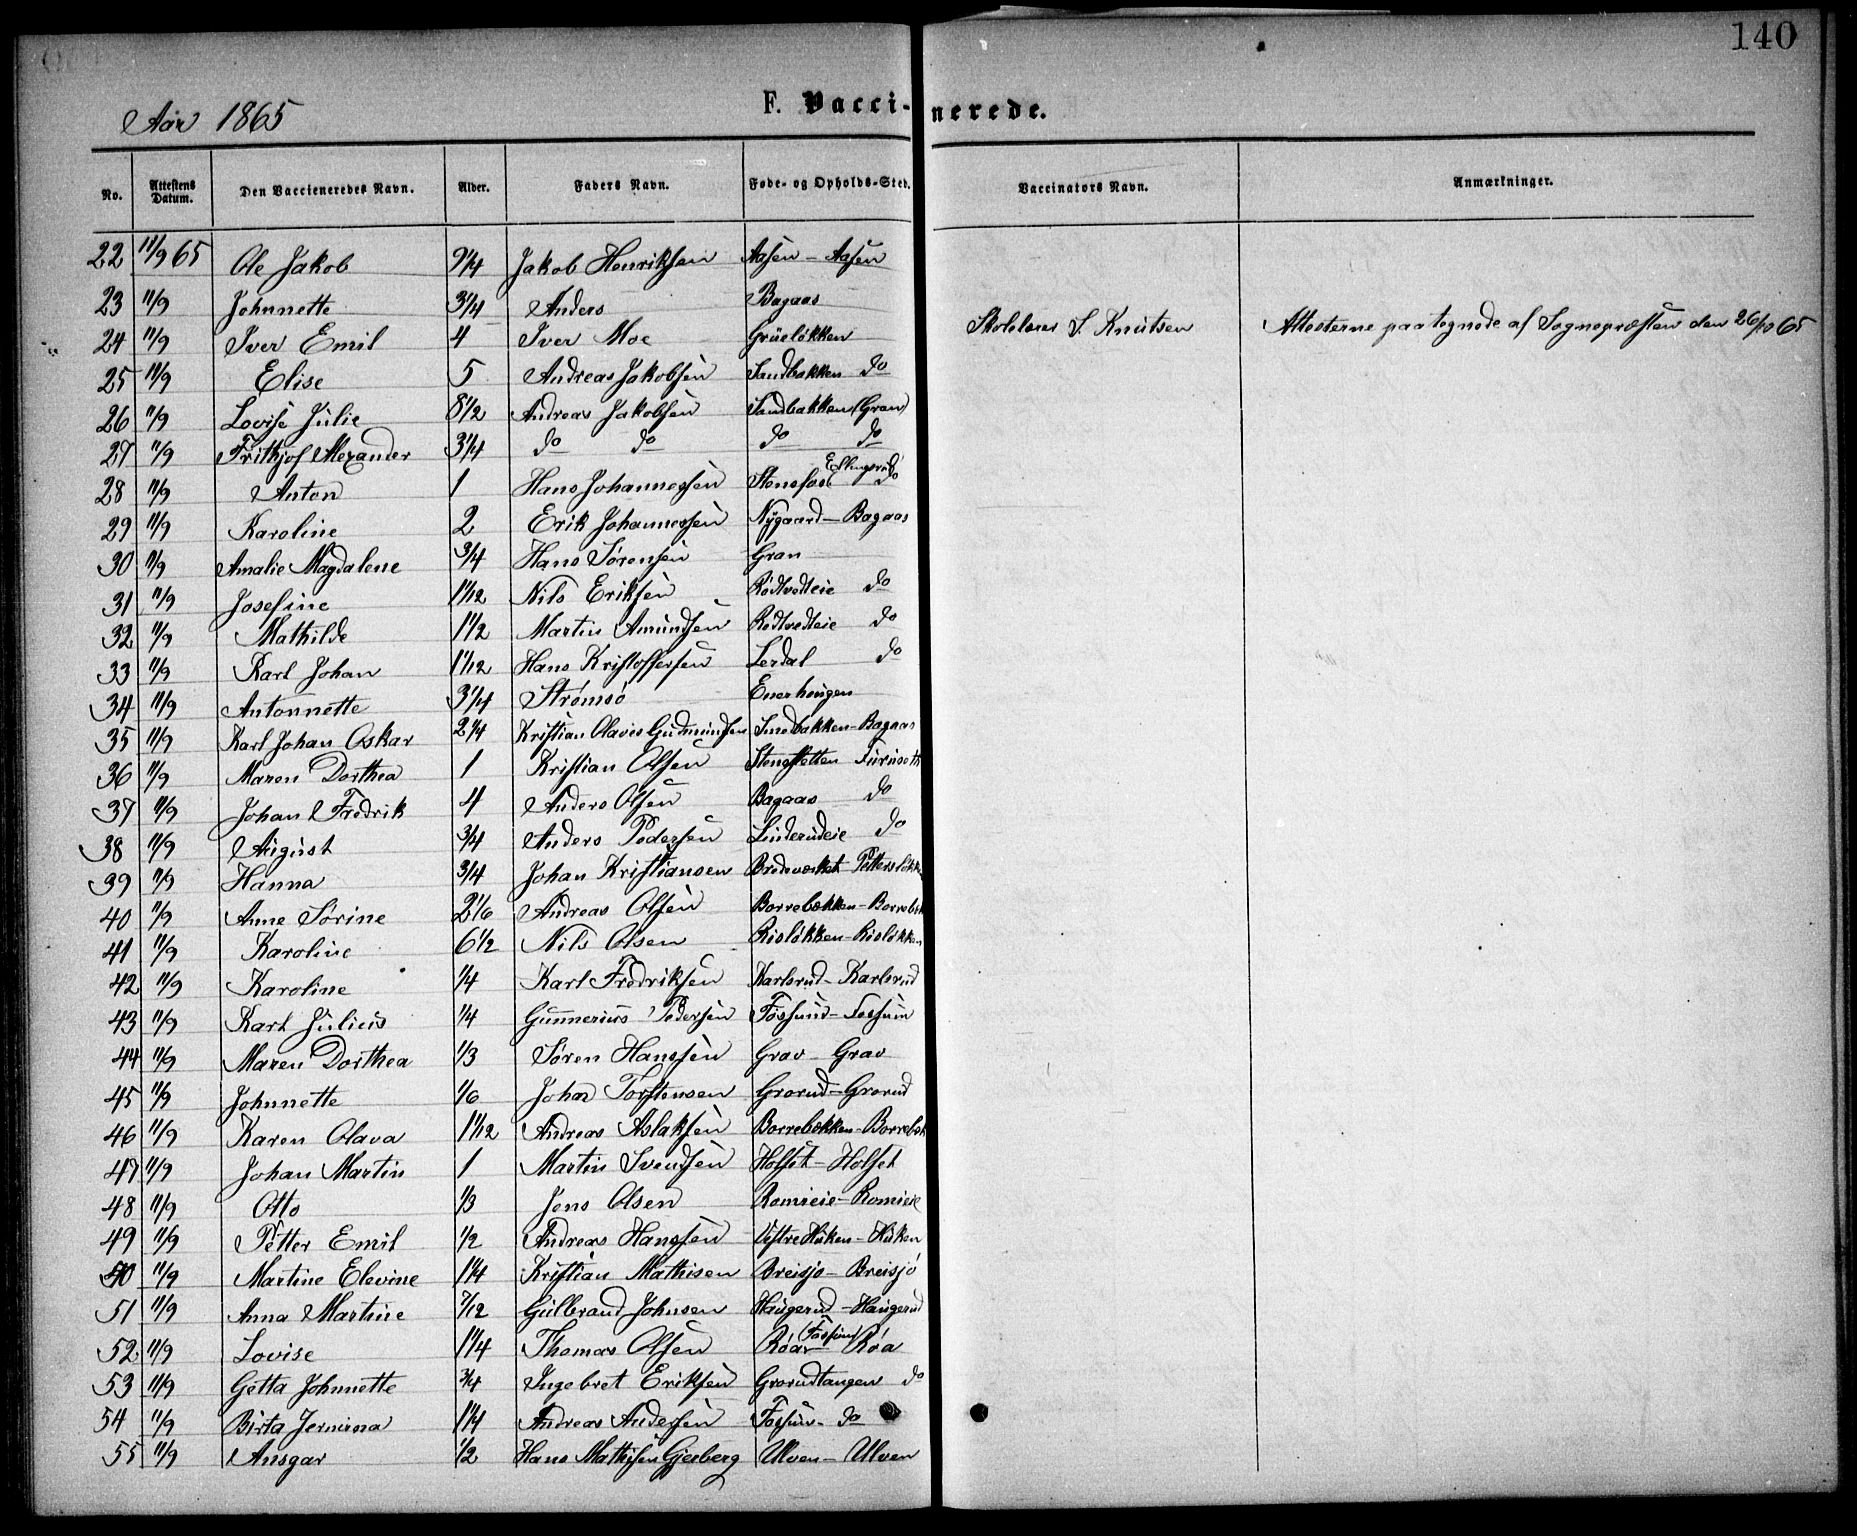 140
Aar 1865
F. Vaccinerede.
No. Attestens Datum. Den Vaccieneredes Navn. Alder. Faders Navn. Føde- og Opholds-Sted. Vaccinators Navn. Anmærkninger.
22 11/9 65 Ole Jakob 9 1/4 Jakob Henriksen Aasen - Aasen
23 11/9 Johnnette 3 1/4 Anders Bagaas
24 11/9 Iver Emil 4 Iver Moe Grüeløkken Skolelærer S. Knutsen Attesterne paategnede af Sognepræsten den 26/10 65
25 11/9 Elise 5 Andreas Jakobsen Sandbakken do
26 11/9 Lovise Julie 8 1/2 Andreas Jakobsen Sandbakken (Gran)
27 11/9 Frithjof Alexander 3 1/4 do do do do
28 11/9 Anton 1 Hans Johannessen Stensfos Ellingsrud do
29 11/9 Karoline 2 Erik Johannessen Nygaard - Bagaas
30 11/9 Amalie Magdalene 3/4 Hans Sørensen Gran
31 11/9 Josefine 1 1/12 Nils Eriksen Rødtvedteie do
32 11/9 Mathilde 1 1/2 Martin Amundsen Rødtvedteie do
33 11/9 Karl Johan 1 1/12 Hans Kristoffersen Lerdal do
34 11/9 Antonnette 3 1/4 Strømsø Enerhougen
35 11/9 Karl Johan Oskar 2 1/4 Kristian Olavis Gudmundsen Smedbakken - Bagaas
36 11/9 Maren Dorthea 1 Kristian Olsen Stengsletten Furuseth
37 11/9 Johan Fredrik 4 Anders Olsen Bagaas do
38 11/9 August 3/4 Anders Pedersen Linderudeie do
39 11/9 Hanna 3/4 Johan Kristiansen Bredeverket Petersløkk
40 11/9 Anne Sørine 2 1/6 Andreas Olsen Borrebekken - Borrebek
41 11/9 Karoline 6 1/2 Nils Olsen Risløkken - Risløkken
42 11/9 Karoline 1/4 Karl Fredriksen Karlsrud - Karlsrud
43 11/9 Karl Julius 1/4 Gunnerius Pedersen Fossum - Fossum
44 11/9 Maren Dorthea 1/3 Søren Hanssen Grav - Grav
45 11/9 Johnnette 1/6 Johan Torstensen Grorud - Grorud
46 11/9 Karen Olava 1 1/12 Andreas Aslaksen Borrebekken - Borrebek
47 11/9 Johan Martin 1 Martin Svendsen Holset - Holset
48 11/9 Otto 1/3 Jens Olsen Romieie - Romieie
49 11/9 Petter Emil 1/2 Andreas Hanssen Vestre Huken - Huken
50 11/9 Martine Elevine 1 1/4 Kristian Mathisen Breisjo - Breisjó
51 11/9 Anna Martine 7/12 Gulbrand Johnsen Haugerud - Haugerud
52 11/9 Lovise 1 1/4 Thomas Olsen Røa (Fossum) Røa
53 11/9 Getta Johnnette 3/4 Ingebret Eriksen Grorudtangen do
54 11/9 Birta Jermina 1 1/4 Andreas Andersen Fossum - do
55 11/9 Ansgar 1/2 Hans Mathisen Gjesberg Ulven - Ulven